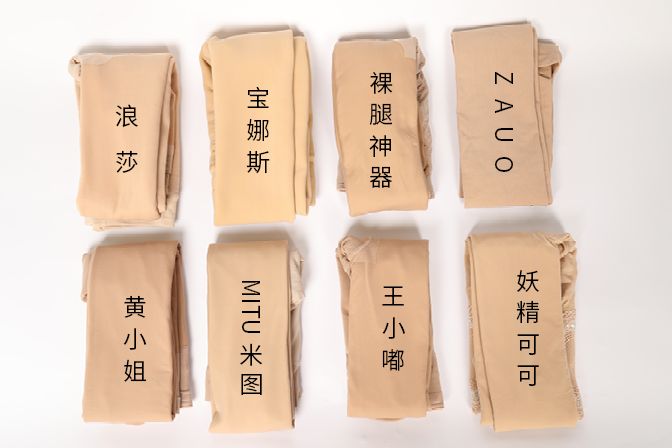 浪莎
宝娜斯
裸腿神器
ZAUO
黄小姐
MITU米图
王小嘟
妖精可可